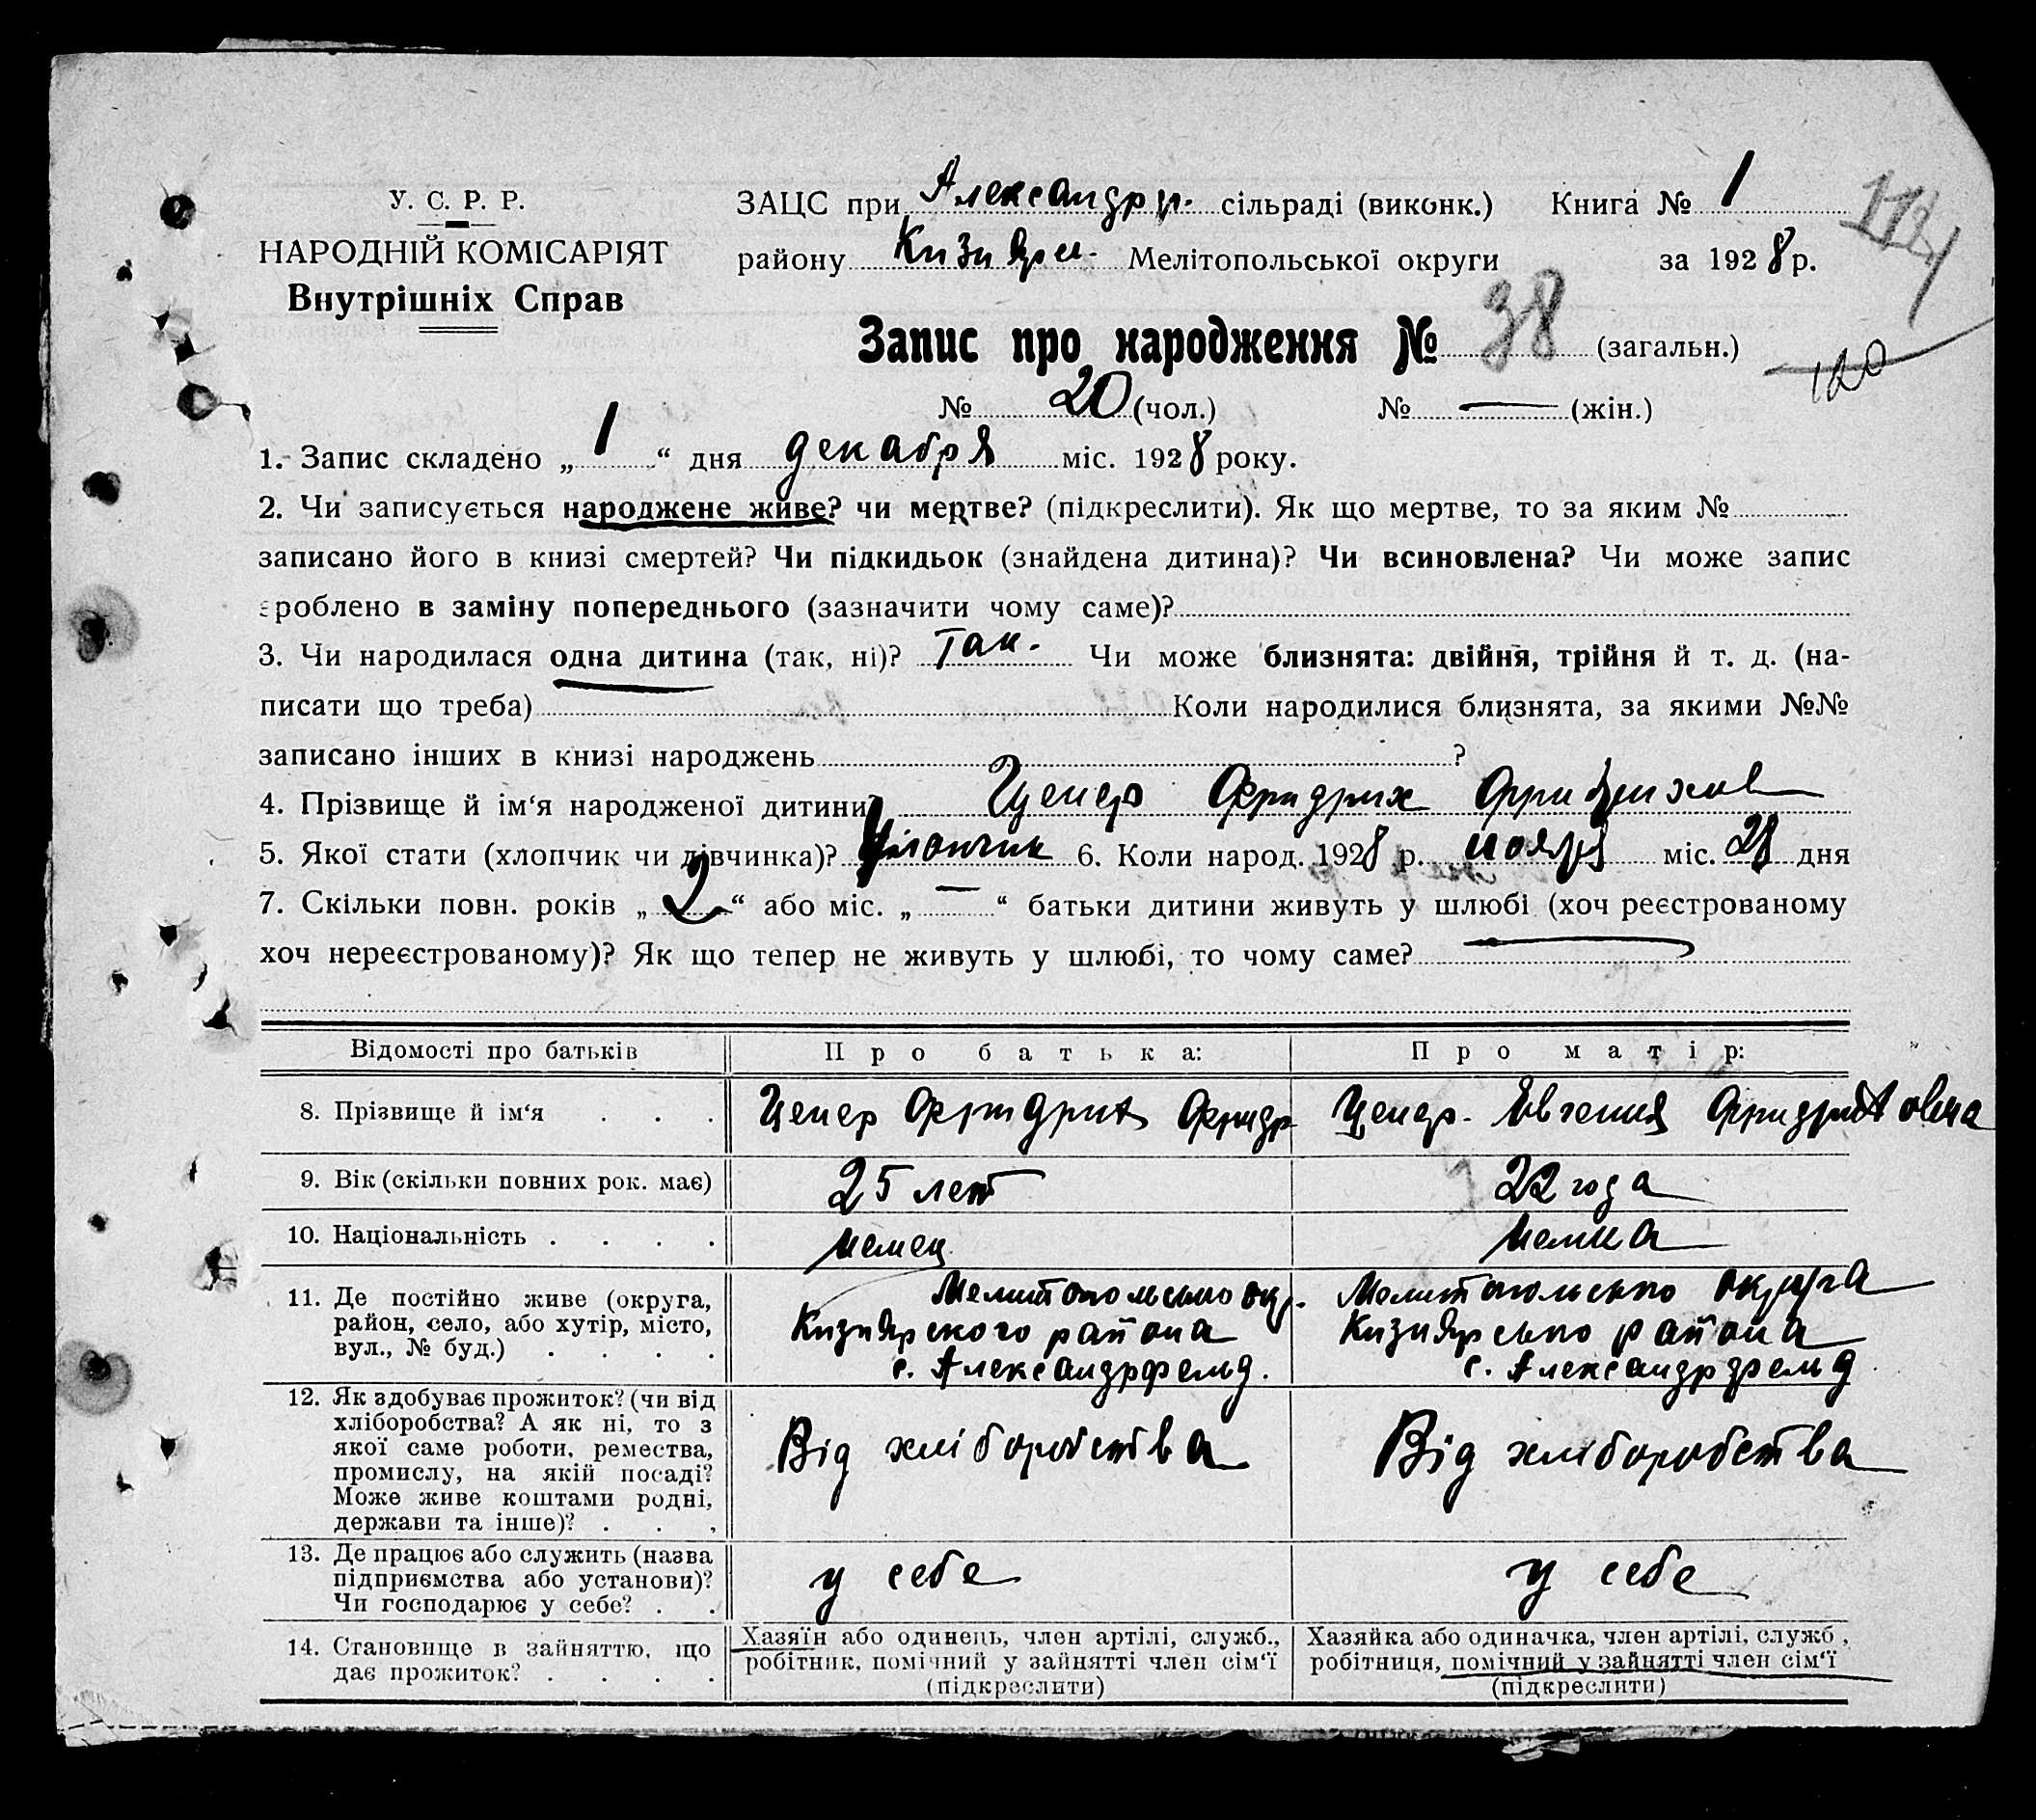 У. С. Р. Р.
НАРОДНІЙ КОМІСАРІЯТ
Внутрішніх Справ
ЗАЦС при Александр. сільраді (виконк.) Книга № 1
району Кизияр. Мелітопольської округи за 1928 р.
Запис про народження № 38 (загальн.)
№ 20 (чол.) № — (жін.)
1. Запис складено „ 1 “ дня декабря міс. 1928 року.
2. Чи записується народжене живе? чи мертве? (підкреслити). Як що мертве, то за яким №
записано його в книзі смертей? Чи підкидьок (знайдена дитина)? Чи всиновлена? Чи може запис
зроблено в заміну попереднього (зазначити чому саме)?
3. Чи народилася одна дитина (так, ні)? Так. Чи може близнята: двійня, трійня й т. д. (на-
писати що треба) Коли народилися близнята, за якими №№
записано інших в книзі народжень ?
4. Прізвище й ім‘я народженої дитини? Ценер Фридрих Фридрихов
5. Якої стати (хлопчик чи дівчинка)? Хлопчик 6. Коли народ. 1928 р. ноября міс. 28 дня
7. Скільки повн. років „ 2 “ або міс. „ — “ батьки дитини живуть у шлюбі (хоч реєстрованому
хоч нереєстрованому)? Як що тепер не живуть у шлюбі, то чому саме?
Відомості про батьків Про батька: Про матір:
8. Прізвище й ім‘я . . . Ценер Фридрих Фридр Ценер. Евгения Фридриховна
9. Вік (скільки повних рок. має) 25 лет 22 года
10. Національність . . . . немец немка
11. Де постійно живе (округа,
район, село, або хутір, місто,
вул., № буд.) . . . .
Мелитопольсько окр.
Кизиярского района
с. Александрфельд.
Мелитопольсько округа
Кизиярсько района
с. Александрфельд
12. Як здобуває прожиток? (чи від
хліборобства? А як ні, то з
якої саме роботи, ремества,
промислу, на якій посаді?
Може живе коштами родні,
держави та інше)? . . .
Від хліборобства
Від хліборобства
13. Де працює або служить (назва
підприємства або установи)?
Чи господарює у себе? . .
у себе
у себе
14. Становище в зайняттю, що
дає прожиток? . . . .
Хазяїн або одинець, член артілі, служб.,
робітник, помічний у зайнятті член сім‘ї
(підкреслити)
Хазяйка або одиначка, член артілі, служб.,
робітниця, помічний у зайнятті член сім‘ї
(підкреслити)